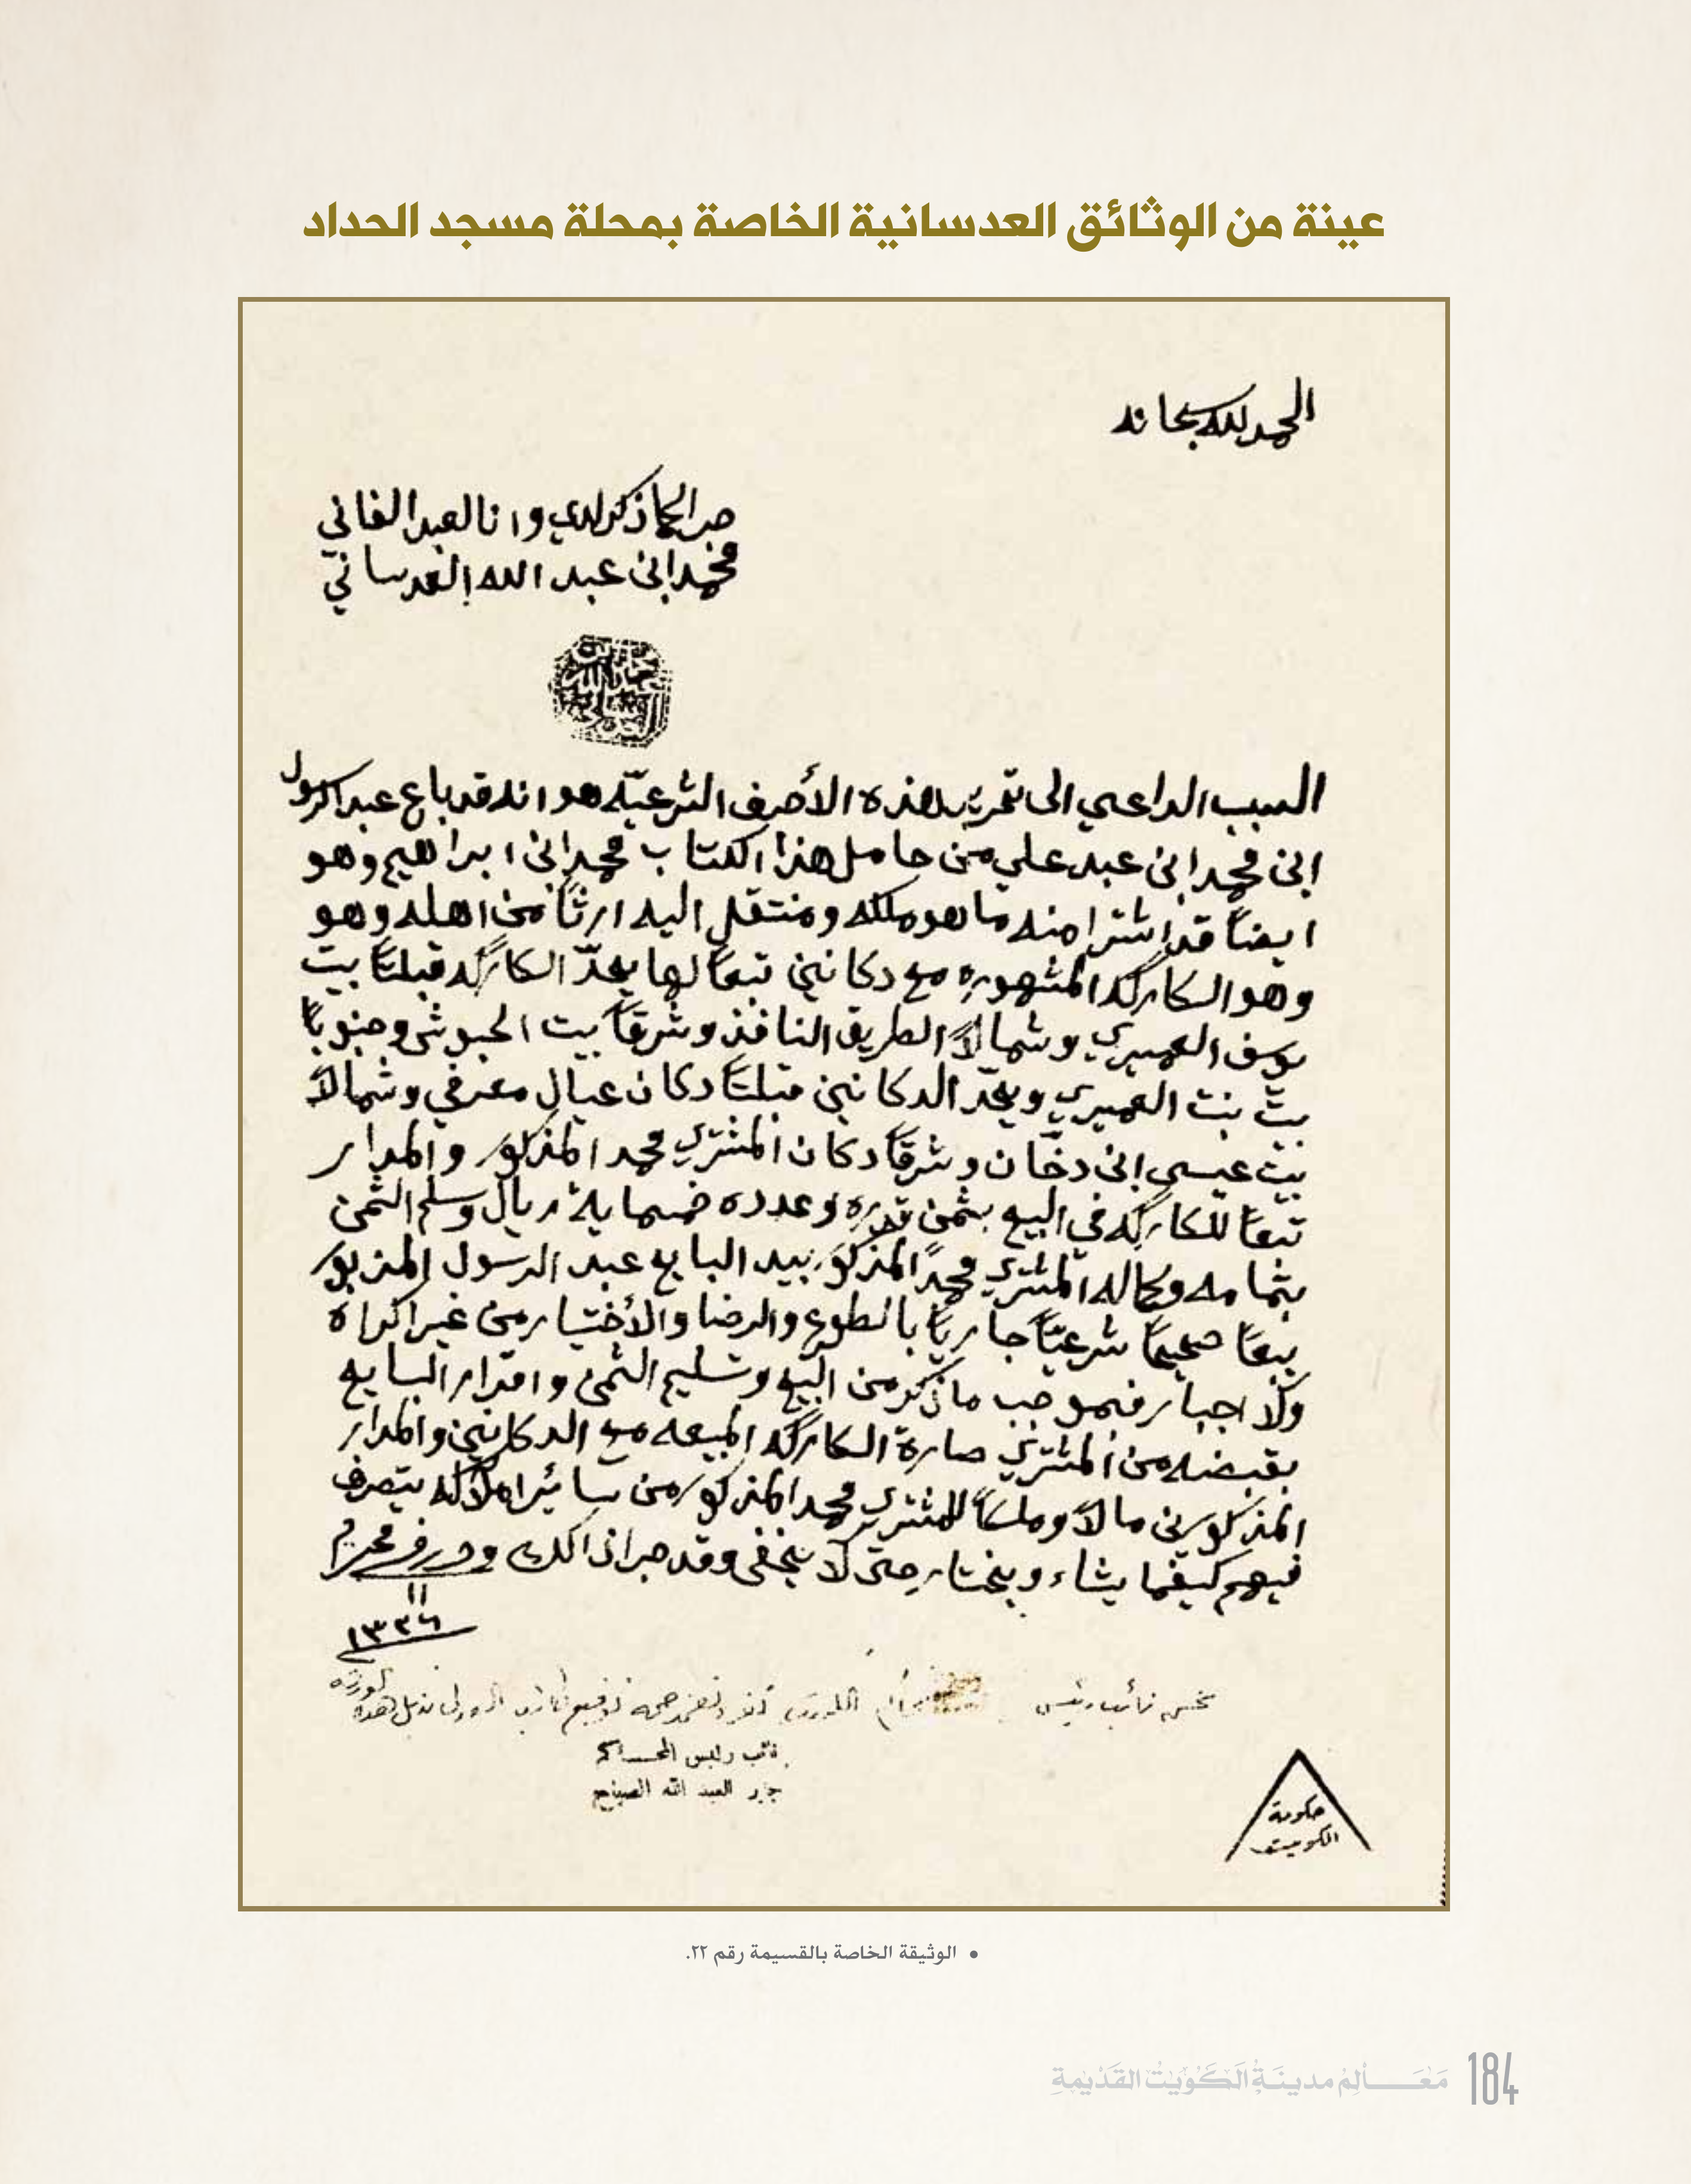 عينة من الوثائق العدسانية الخاصة بمحلة مسجد الحداد
الحمد لله سبحانه
جرا كما ذكر لدي وانا العبد الفاني
محمد ابن عبد الله العدساني
السبب الداعي الى تحرير هذه الأحرف الشرعيّه هو انه قد باع عبد الرسول
ابن محمد ابن عبد علي من حامل هذا الكتاب محمد ابن ابراهيم وهو
ايضاً قد اشترا منه ما هو ملكه ومنتقل اليه ارثاً من اهله وهو
وهو الكاركه المشهوره مع دكانين تبعاً لها يحدّ الكاركه قبلتاً بيت
يوسف العميري وشمالاً الطريق النافذ وشرقاً بيت الحبوشي وجنوباً
بيت بنت العميري ويحدّ الدكانين قبلتاً دكان عيال معرفي وشمالاً
بيت عيسى ابن دخّان وشرقاً دكان المشتري محمد المذكور والمدار
تبعاً للكاركه في البيع بثمن قدره وعدده خمسماية ريال وسلم الثمن
بتمامه وكماله المشتري محمداً المذكور بيد البايع عبد الرسول المزبور
بيعاً صحيحاً شرعيّاً جارياً بالطوع والرضا والأختيار من غير اكراه
ولا اجبار فبموجب ما ذكر من البيع وتسليم الثمن واقرار البايع
بقبضه من المشتري صارة الكاركه المبيعه مع الدكانين والمدار
المذكورين مالاً وملكاً للمشتري محمد المذكور من سائر املاكه يتصرف
فيهم كيفما يشاء ويختار حتى لا يخفى وقد جرا ذالك وحرر في محرم
١١
١٣٢٦
نحن نائب رئيس
نائب رئيس المحاكم
جابر العبد الله الصباح
حكومة
الكويت
• الوثيقة الخاصة بالقسيمة رقم ٢٢.
مَعَـــالِمُ مدينَةِ الكُوَيْتِ القَدْيمَةِ
184